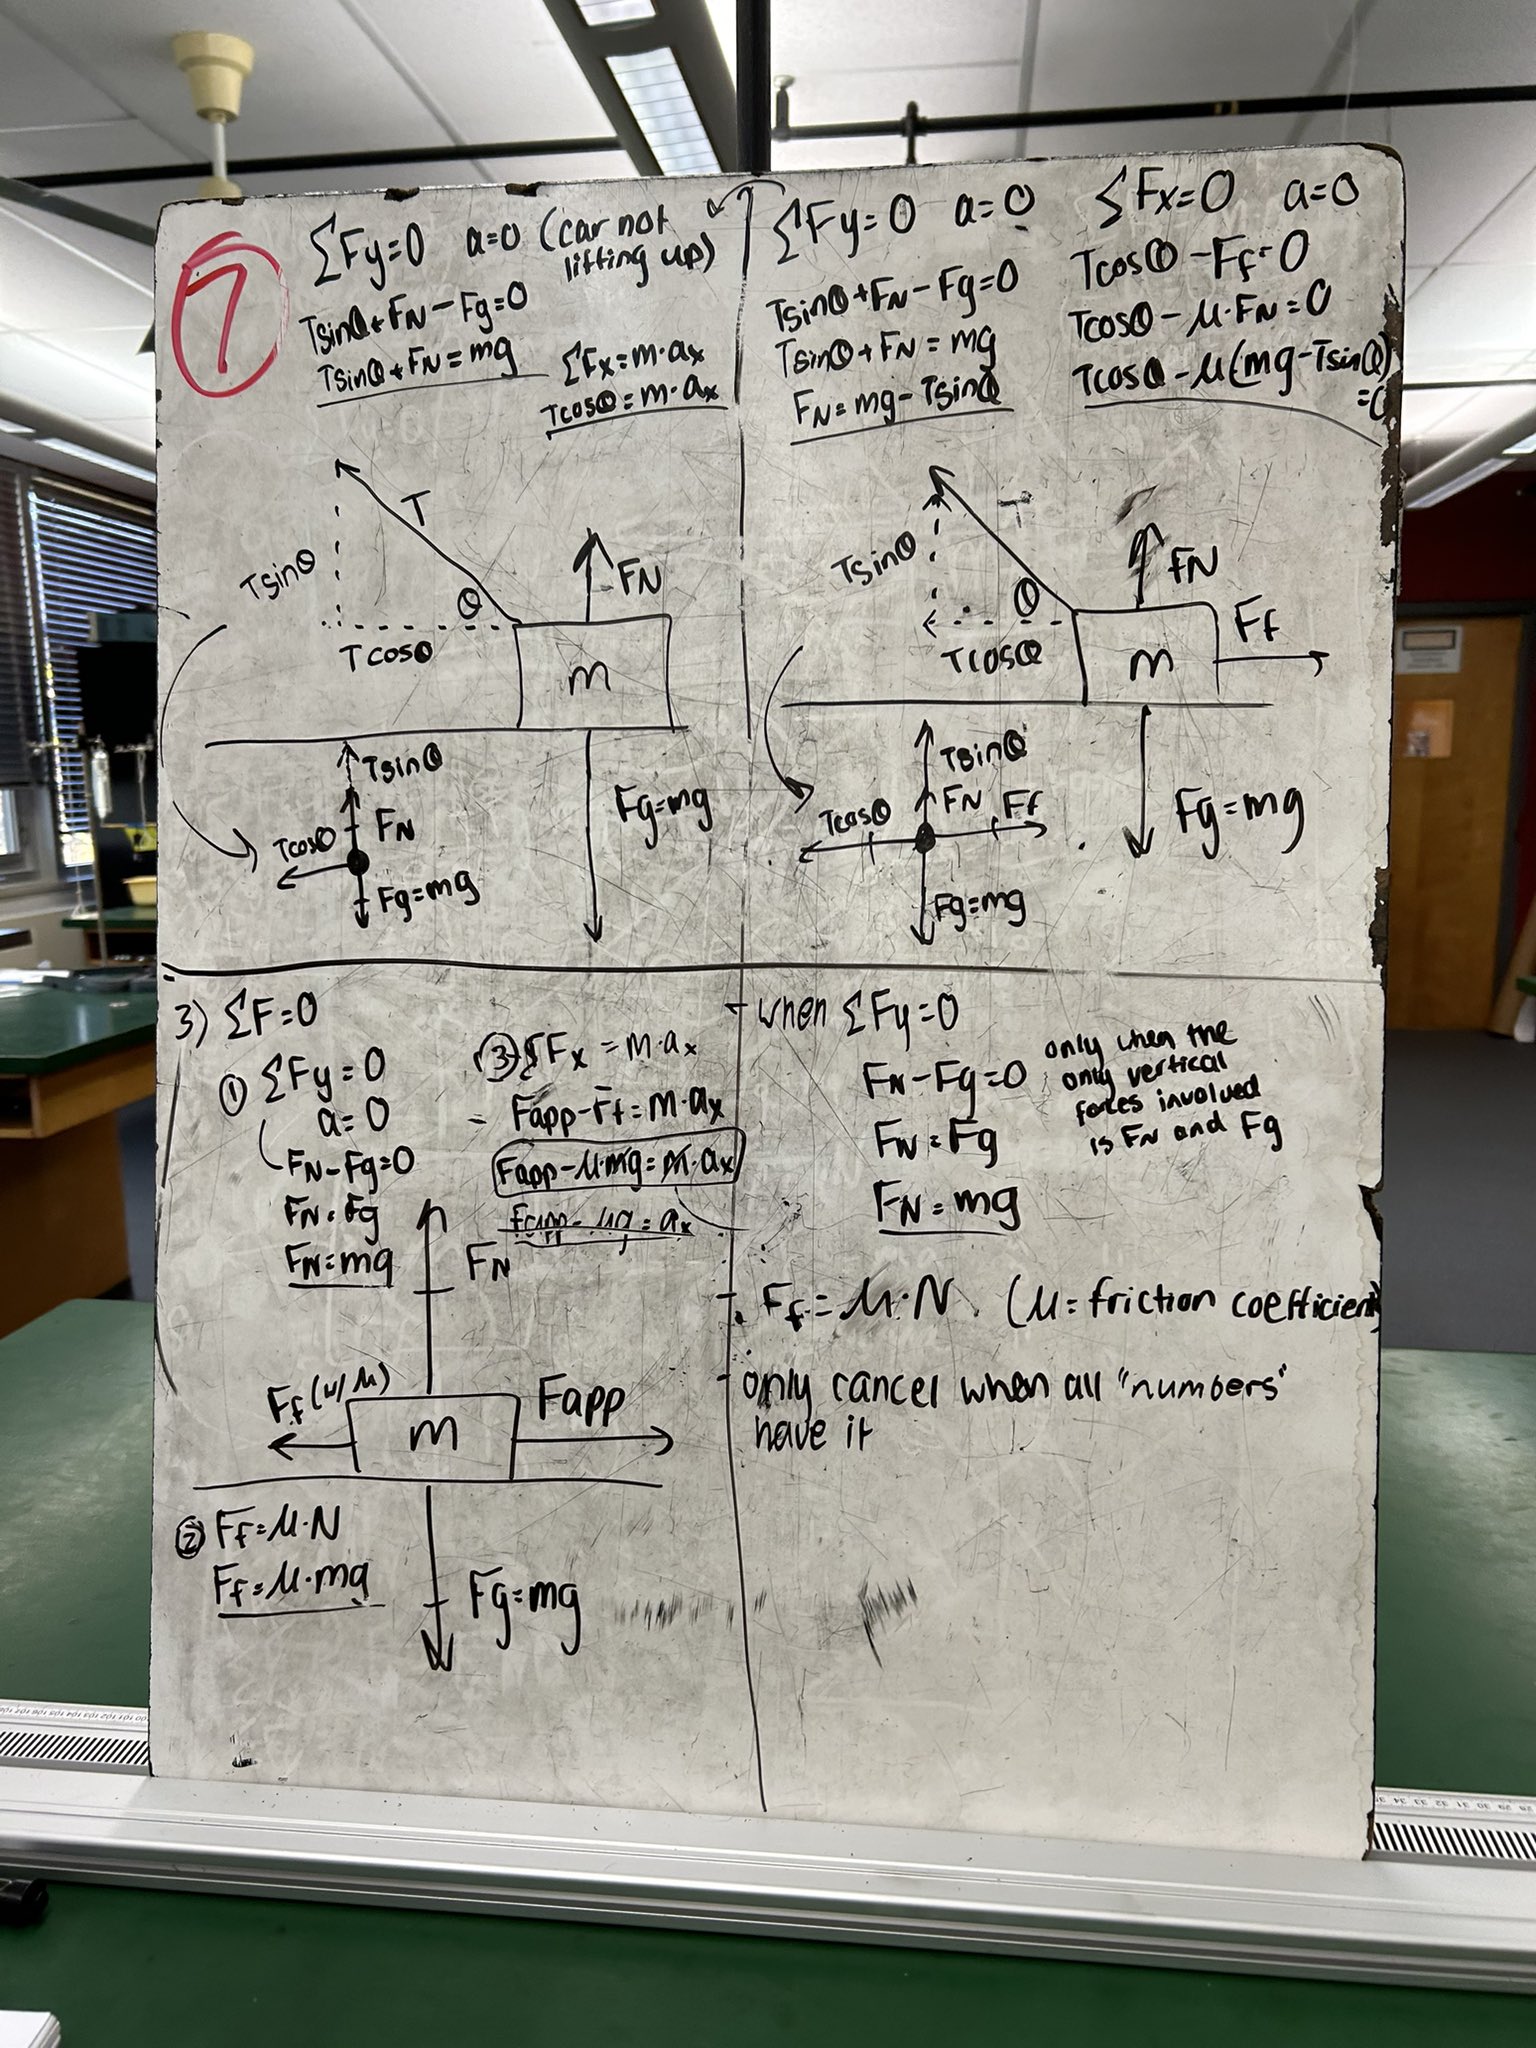 7
ΣFy=0 a=0 (car not
lifting up)
Tsinθ+FN-Fg=0
Tsinθ+FN=mg
ΣFx=m·ax
Tcosθ=m·ax
T
Tsinθ
θ
FN
Tcosθ
m
Tsinθ
FN
Tcosθ
Fg=mg
Fg=mg
ΣFy=0 a=0
Tsinθ+FN-Fg=0
Tsinθ+FN=mg
FN=mg-Tsinθ
ΣFx=0 a=0
Tcosθ-Ff=0
Tcosθ-μ·FN=0
Tcosθ-μ(mg-Tsinθ)
=0
T
Tsinθ
θ
FN
Ff
Tcosθ
m
Tsinθ
FN Ff
Tcosθ
Fg=mg
Fg=mg
3) ΣF=0
① ΣFy=0
a=0
FN-Fg=0
FN=Fg
FN=mg
③ ΣFx=m·ax
Fapp-Ff=m·ax
Fapp-μ·mg=m·ax
Fapp-μg=ax
FN
Ff(w/μ)
m
Fapp
② Ff=μ·N
Ff=μ·mg
Fg=mg
- when ΣFy=0
FN-Fg=0
FN=Fg
FN=mg
only when the
only vertical
forces involved
is FN and Fg
- Ff=μ·N (μ=friction coefficient)
- only cancel when all "numbers"
have it